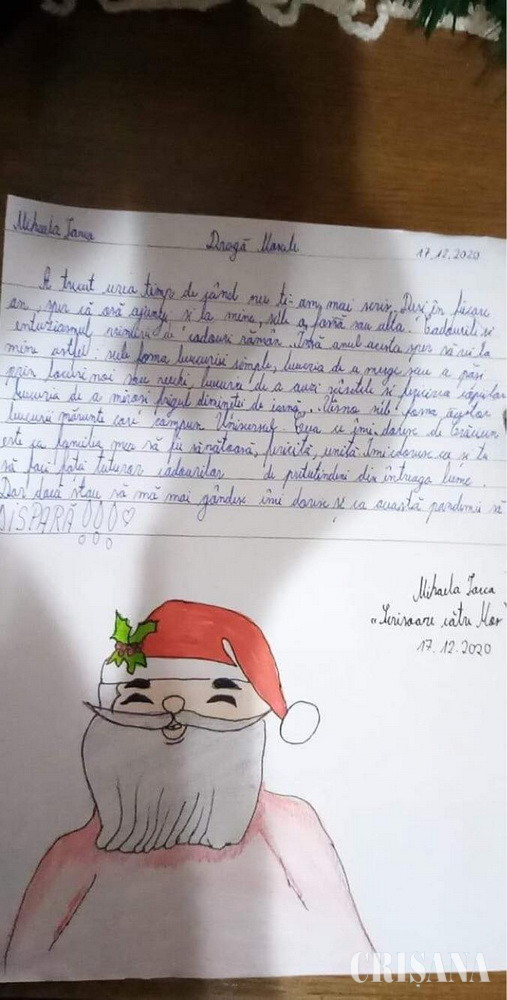 Mihaela Iarca Dragă Moșule 17.12.2020
A trecut ceva timp de când nu ți-am mai scris. Deși în fiecare
an, sper că osă ajungi și la mine, sub o formă sau alta. Cadourile și
entuziasmul primirii de cadouri rămân. Însă anul acesta sper să vii la
mine astfel: sub forma bucuriei simple, bucuria de a merge sau a păși
prin locuri noi sau vechi, bucuria de a auzi râsetele și fericirea copiilor
bucuria de a mirosi frigul dimineții de iarnă, .. sub forma
bucurii mărunte care compun Universul. Ceea ce îmi doresc de Crăciun
este ca familia mea să fie sănătoasă, fericită, unită. Îmi doresc ca și tu
să faci față tuturor cadourilor de pretutindeni din întreaga lume.
Dar dacă stau să mă mai gândesc îmi doresc și ca această pandemii să
DISPARĂ!!!♡
Mihaela Iarca
"Scrisoare către Moș"
17.12.2020
CRIȘANA